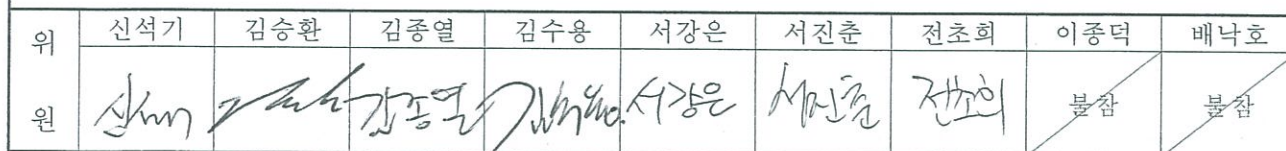 위원 신석기 김승환 김종열 김수용 서강은 서진춘 전초희 이종덕 배낙호
김종열 서강은 서진춘 전초희 불참 불참